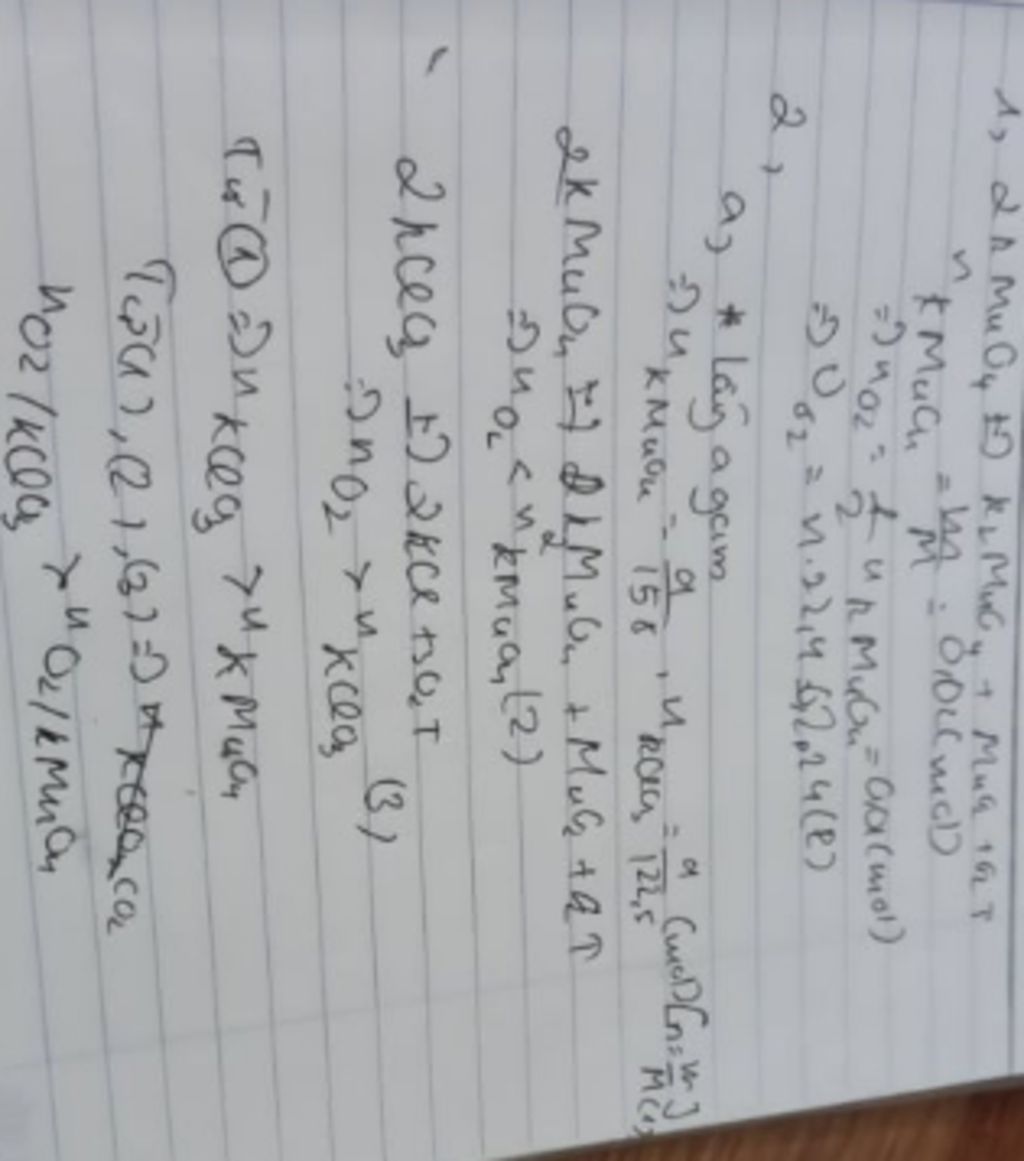 1, 2KMnO4 t→ K2MnO4 + MnO2 + O2 ↑
n KMnO4 = m/M = 0,02 (mol)
=> nO2 = 1/2 n KMnO4 = 0,01 (mol)
=> VO2 = n.22,4 = 0,224 (l)
2,
a, * Lấy a gam
=> n KMnO4 = a/158 , n KClO3 = a/122,5 (mol) [n = m/M] (1)
2KMnO4 t→ K2MnO4 + MnO2 + O2 ↑
=> nO2 < n KMnO4 (2)
2KClO3 t→ 2KCl + 3O2 ↑
=> nO2 > n KClO3 (3)
Từ (1) => n KClO3 > n KMnO4
Từ (1), (2), (3) => có
nO2/KClO3 > nO2/KMnO4